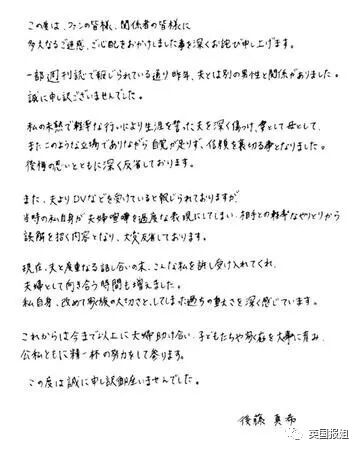 この度は、ファンの皆様、関係者の皆様に
多大なるご迷惑、ご心配をおかけしました事を深くお詫び申し上げます。
一部週刊誌で報じられている通り昨年、夫とは別の男性と関係がありました。
誠に申し訳ございませんでした。
私の未熟で軽率な行いにより生涯を誓った夫を深く傷つけ、妻として母として、
またこのような立場でありながら自覚が足りず、信頼を裏切る事となりました。
後悔の思いとともに深く反省しております。
また、夫よりDVなどを受けていると報じられておりますが、
当時の私自身が夫婦喧嘩を過度な表現にしてしまい、相手との軽率なやりとりから
誤解を招く内容となり、大変反省しております。
現在、夫と度重なる話し合いの末、こんな私を許し受け入れてくれ、
夫婦として向き合う時間も増えました。
私自身、改めて家族の大切さと、してしまった過ちの重大さを深く感じています。
これからは今まで以上に夫婦助け合い、子どもたちや家庭を大事に育み、
公私ともに精一杯の努力をして参ります。
この度は誠に申し訳御座いませんでした。
後藤 真希
英国报姐